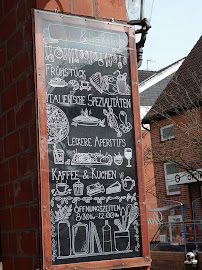 Frühstück
Italienische Spezialitäten
Leckere Aperitifs
Kaffee & Kuchen
Öffnungszeiten